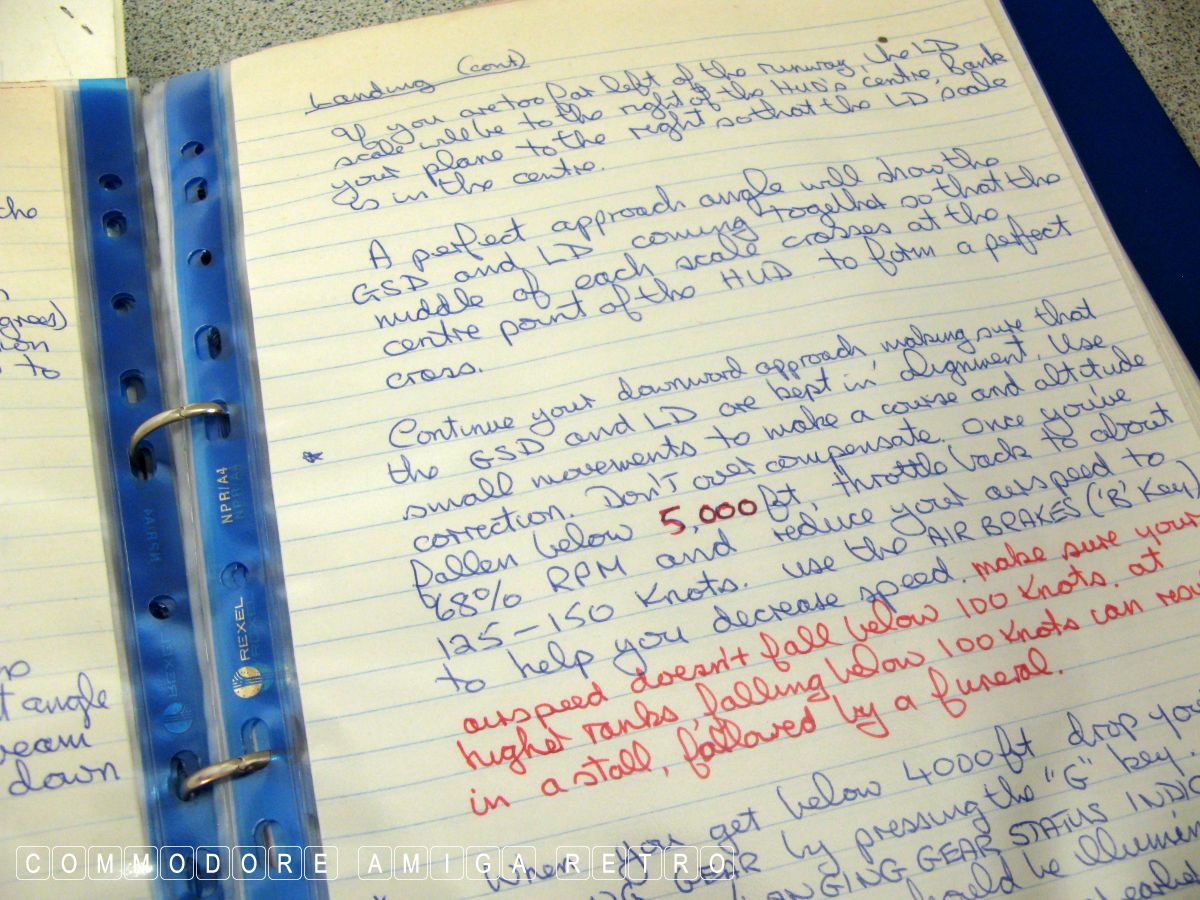 cho
grees)
to
angle
down
Landing (cont)
If you are too far left of the runway, the LD
scale will be to the right of the HUD's centre. Bank
your plane to the right so that the LD scale
is in the centre.
A perfect approach angle will show the
GSD and LD coming together so that the
middle of each scale crosses at the
centre point of the HUD to form a perfect
cross.
* Continue your downward approach, making sure that
the GSD and LD are kept in alignment. Use
small movements to make a course and altitude
correction. Don't over compensate. Once you've
fallen below 5,000ft, throttle back to about
68% RPM and reduce your airspeed to
125-150 Knots. Use the AIR BRAKES ('B' Key)
to help you decrease speed. make sure your
airspeed doesn't fall below 100 Knots. at
higher ranks, falling below 100 Knots can
in a stall, followed by a funeral.
When you get below 4000ft drop
GEAR by pressing the "G" key.
GEAR STATUS
should be
NPR/A4
REXEL
COMMODORE AMIGA RETRO